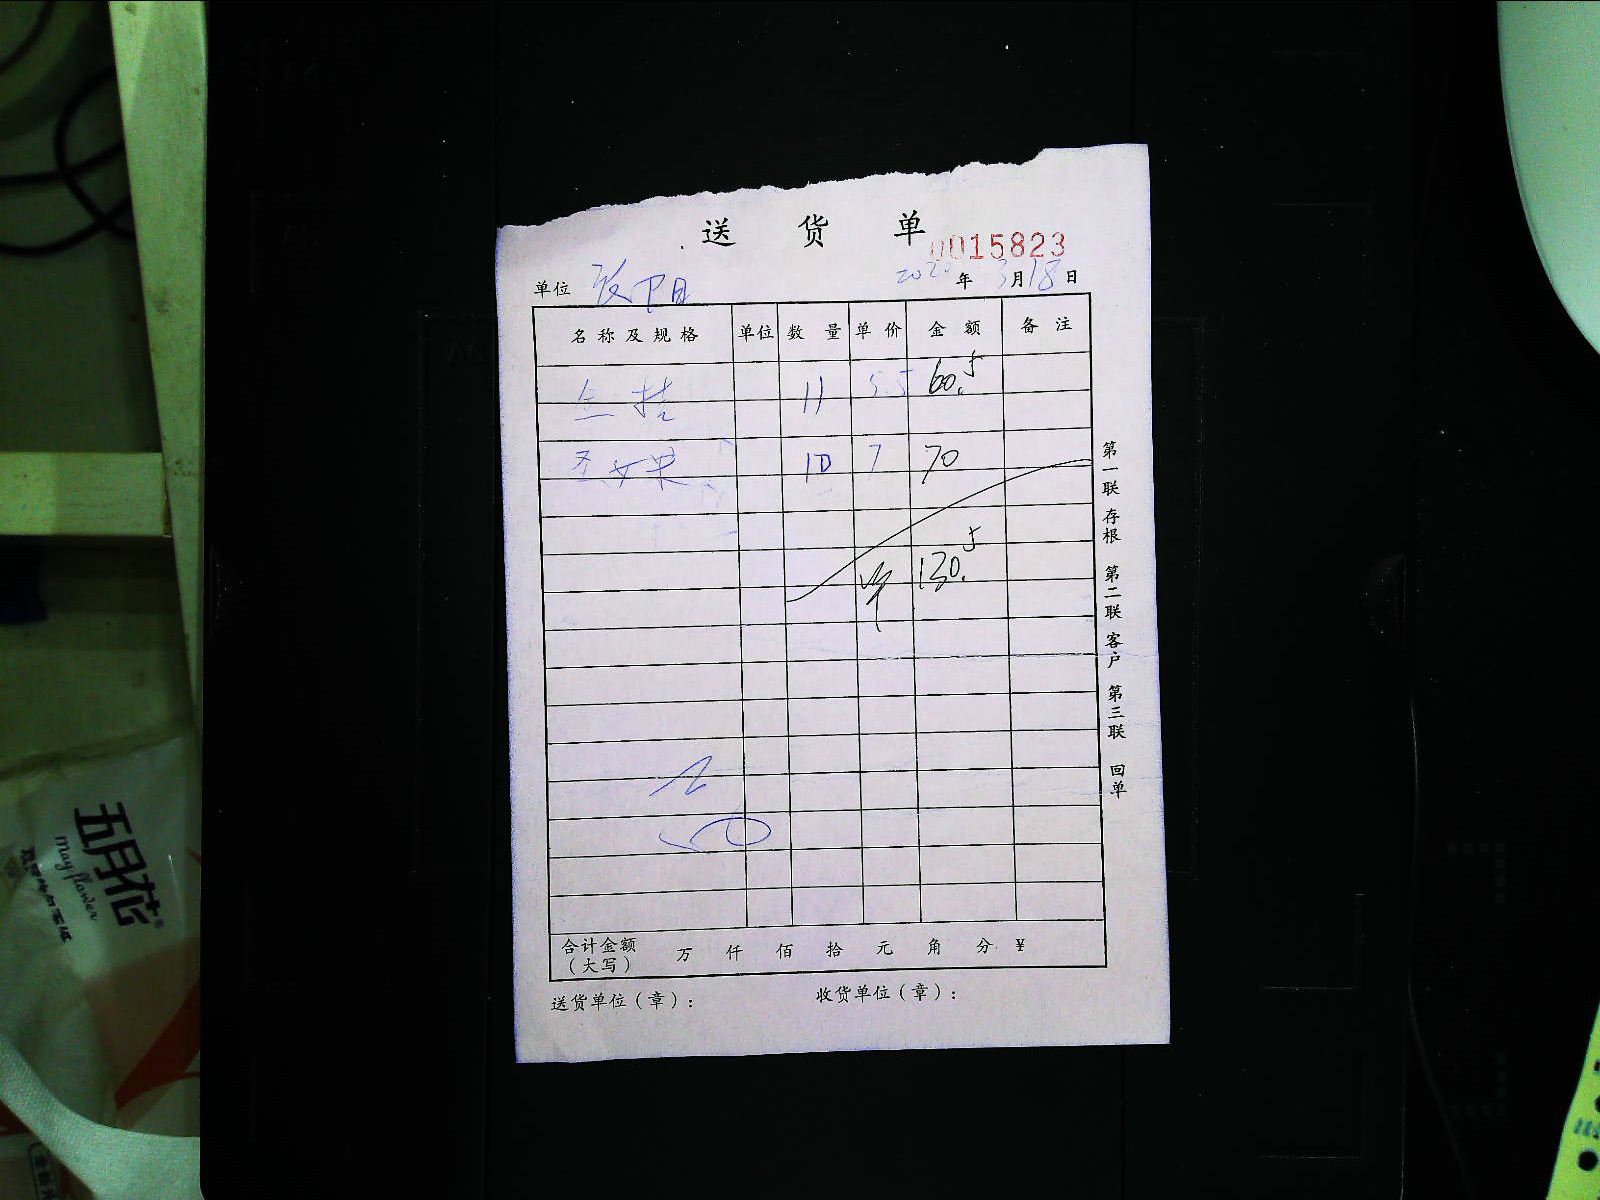 送 货 单
0015823
单位 2020年 3月18日
名称及规格 单位 数 量 单 价 金 额 备 注
金桔 11 5.5 60.5
圣女果 10 7 70
130.5
合计金额（大写） 万 仟 佰 拾 元 角 分 ¥
送货单位（章）： 收货单位（章）：
第一联 存根 第二联 客户 第三联 回单
五月花
Mayflower